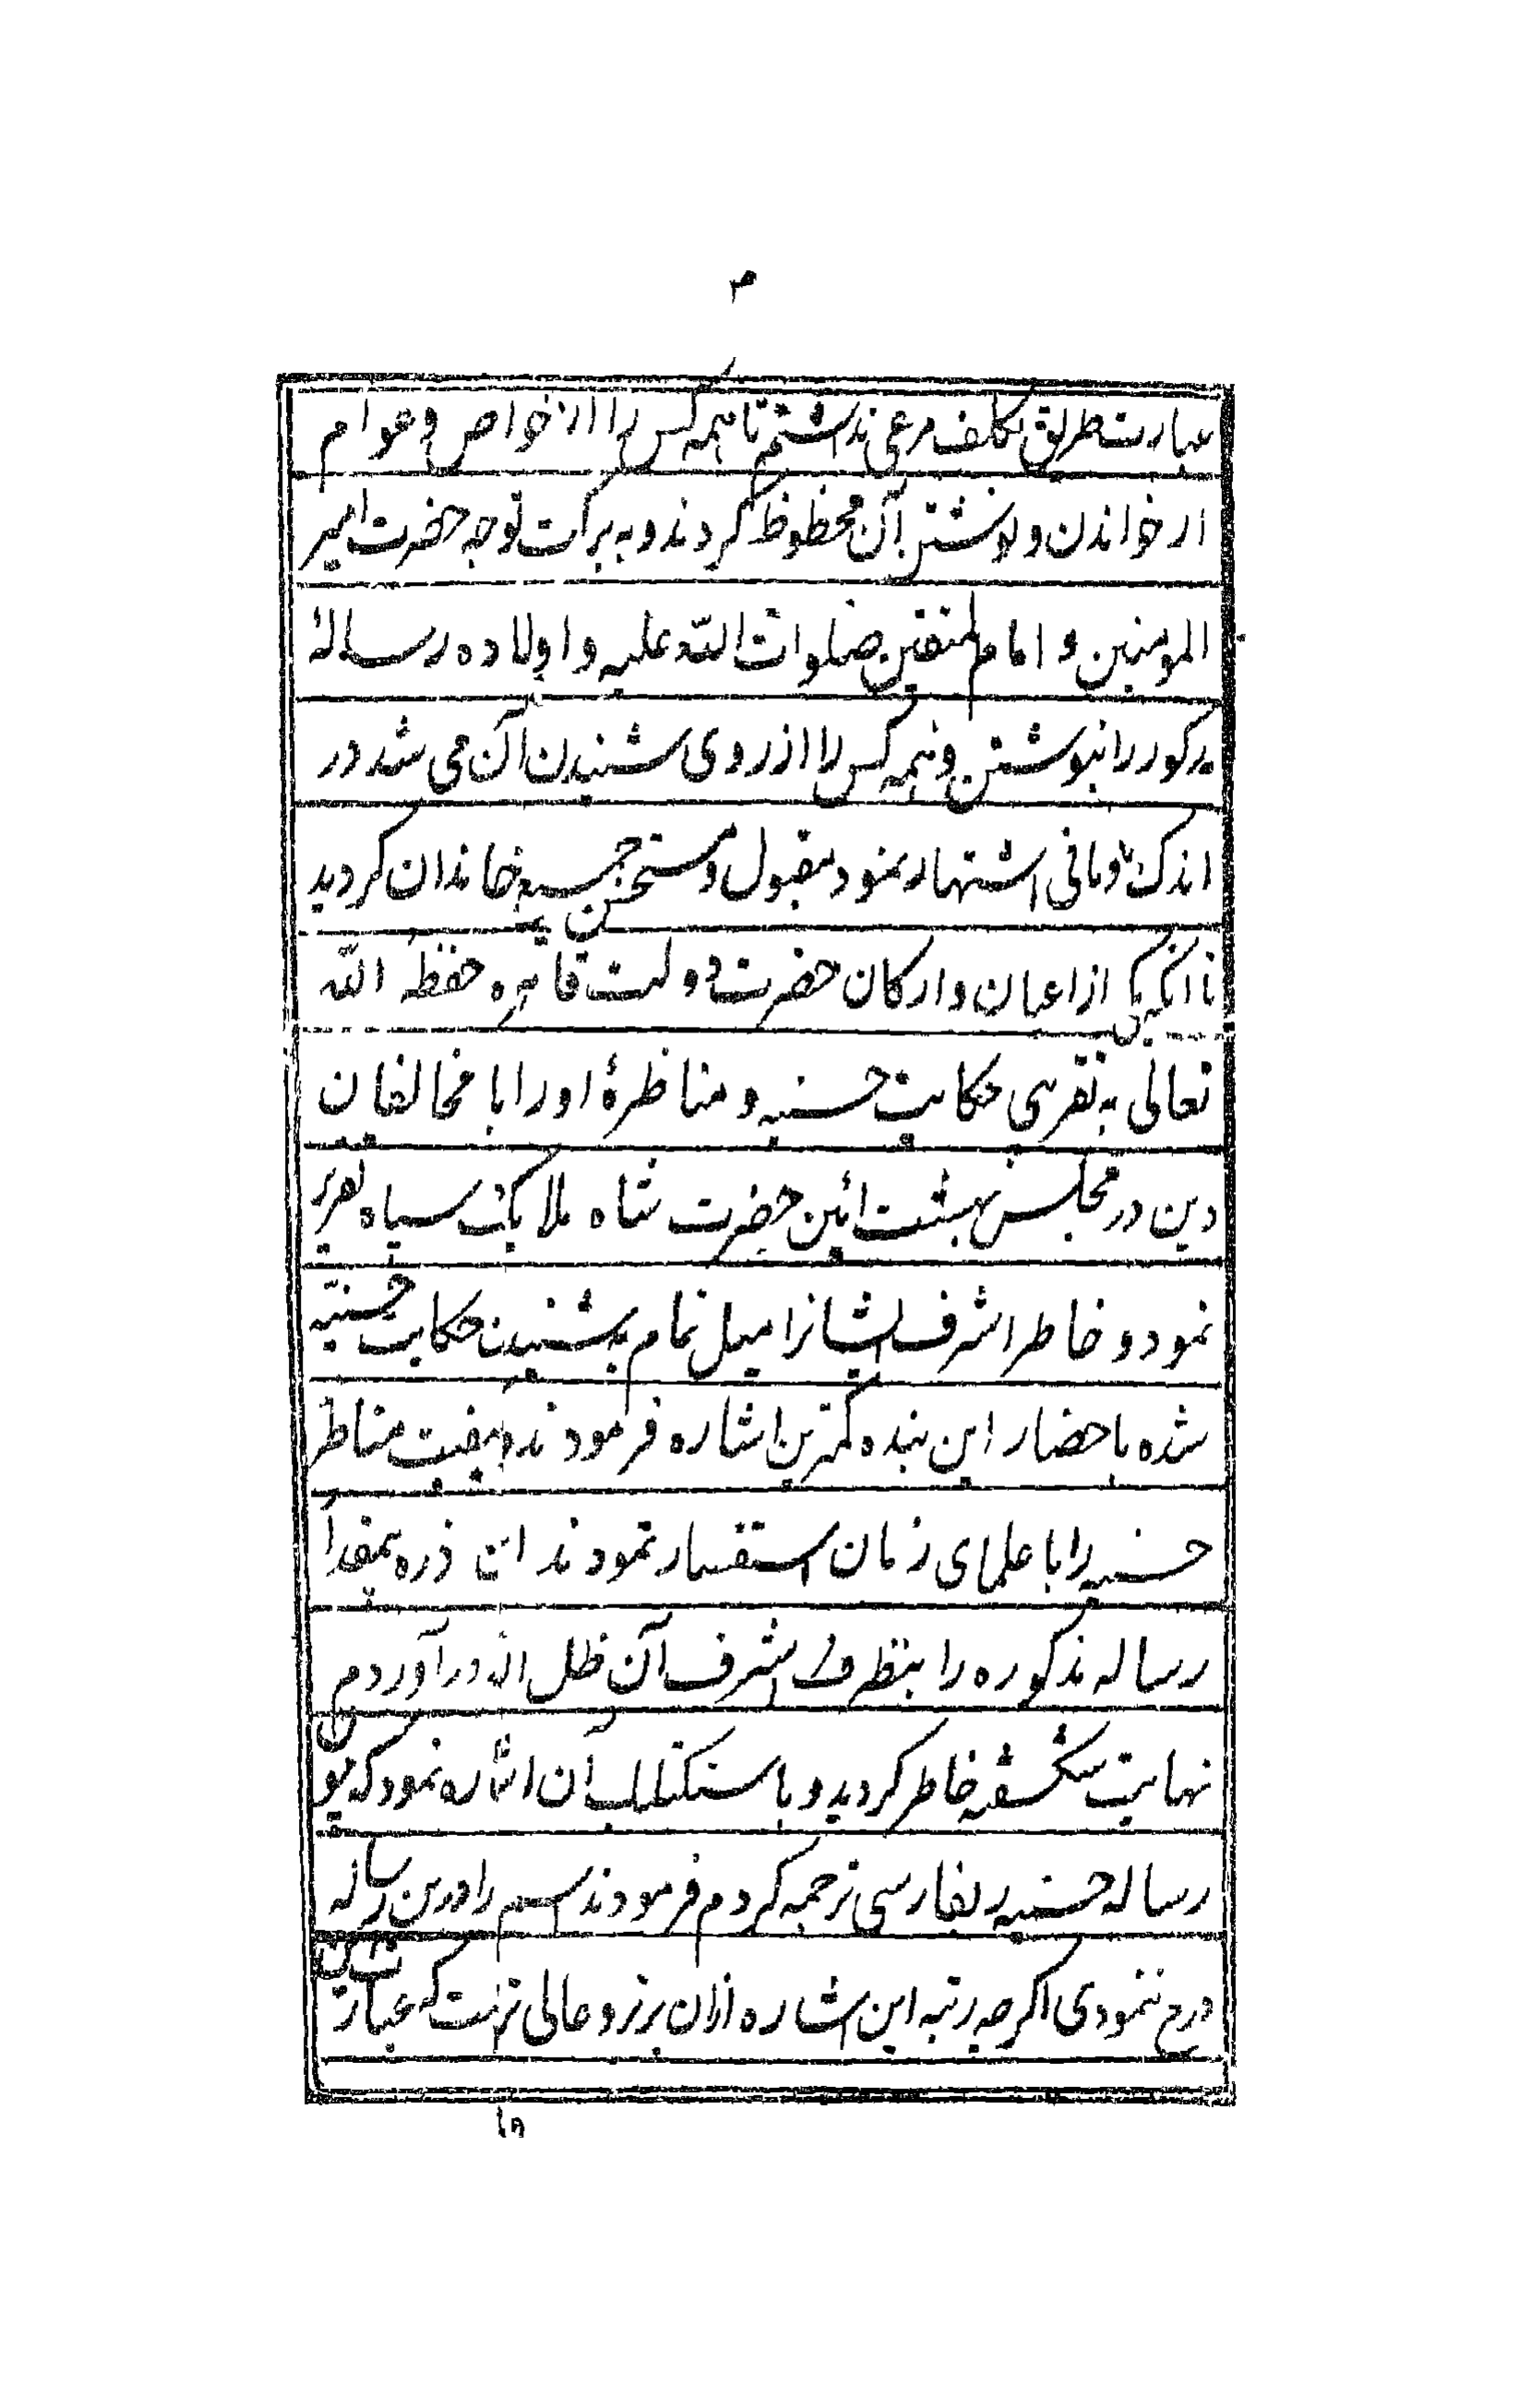 ۳
عبارت طریق تکلف مرعی نداشتم تا همه کس را از خواص و عوام
از خواندن و نوشتن آن محظوظ گردند و به برکت توجه حضرت امیر
المومنین و امام المتقین صلوات الله علیه و اولاده رسالۀ
مذکور را نبوشتن و همه کس را از روی شنیدن آن می شد در
اندک زمانی اشتهار نمود مقبول و مستحسن جمیع خاندان کردید
تا آنکه یکی از اعیان و ارکان حضرت دولت قاهره حفظه الله
تعالی به تقریبی حکایت حسنیه و مناظرۀ او را با مخالفان
دین در مجلس بهشت آئین حضرت شاه ملایک سپاه تقریر
نمود و خاطر اشرف ایشانرا میل تمام به شنیدن حکایت حسنیّه
شده باحضار این بنده کمترین اشاره فرمودند و کیفیت مناظر
حسنیه را با علمای زمان استفسار نمودند این ذره بیمقدار
رساله مذکوره را بنظر اشرف آن ظل اله در آوردم
نهایت شگفته خاطر کردید و باستکتاب آن اشاره نمود که چون
رساله حسنیه را بفارسی ترجمه کردم فرمودند اسم را درین رساله
درج ننمودی اگرچه رتبه این اشاره ازان برتر و عالی تر است که عبارت